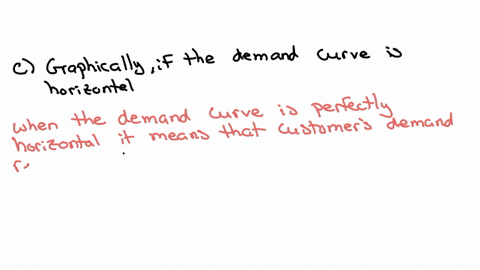 c) Graphically, if the demand curve is
horizontel
when the demand curve is perfectly
horizontal it means that customer's demand
r